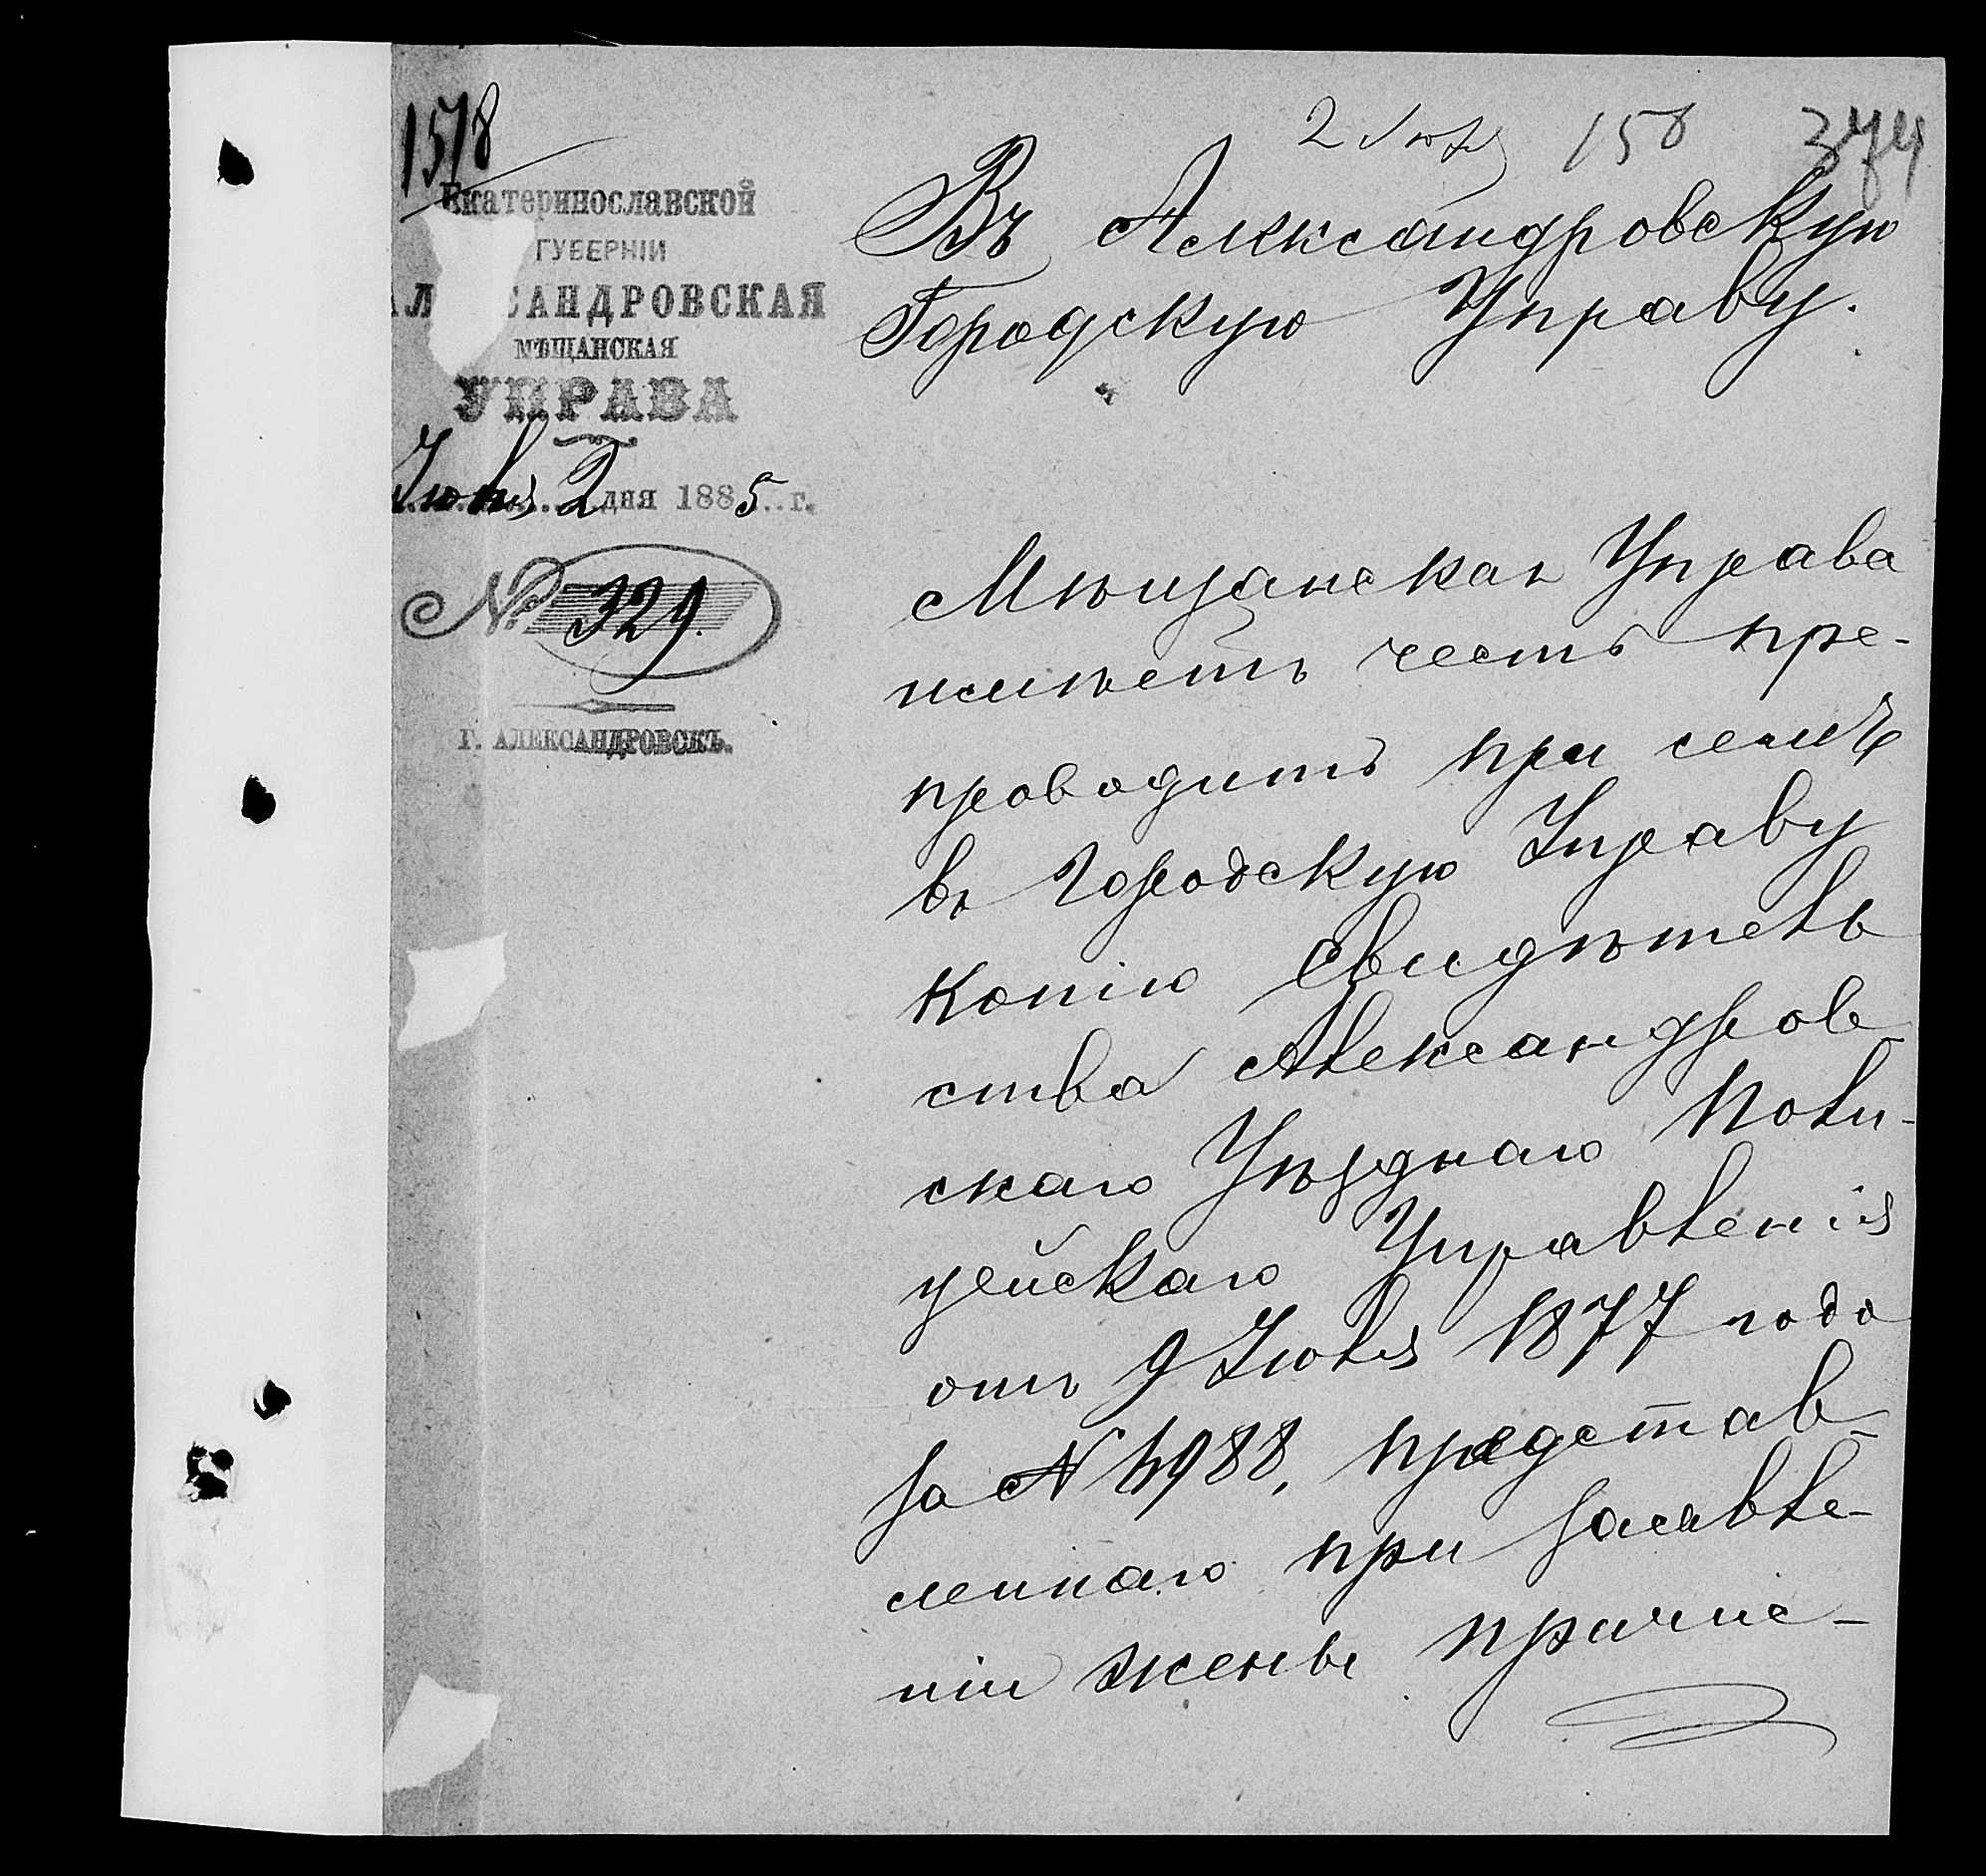 1518
2 Июля 158 374
Екатеринославской
ГУБЕРНІИ
АЛ САНДРОВСКАЯ
МѢЩАНСКАЯ
УПРАВА
Июля 2 дня 1885 г.
№ 329.
Г. АЛЕКСАНДРОВСКЪ.
Въ Александровскую
Городскую Управу.
Мѣщанская Управа
имѣетъ честь пре-
проводить при семъ
въ Городскую Управу
копію Свидѣтель
ства Александров-
скаго Уѣзднаго Поли-
цейскаго Управленія
отъ 9 Июля 1877 года
за № 4988, представ-
леннаго при заявле-
ніи жены причис-